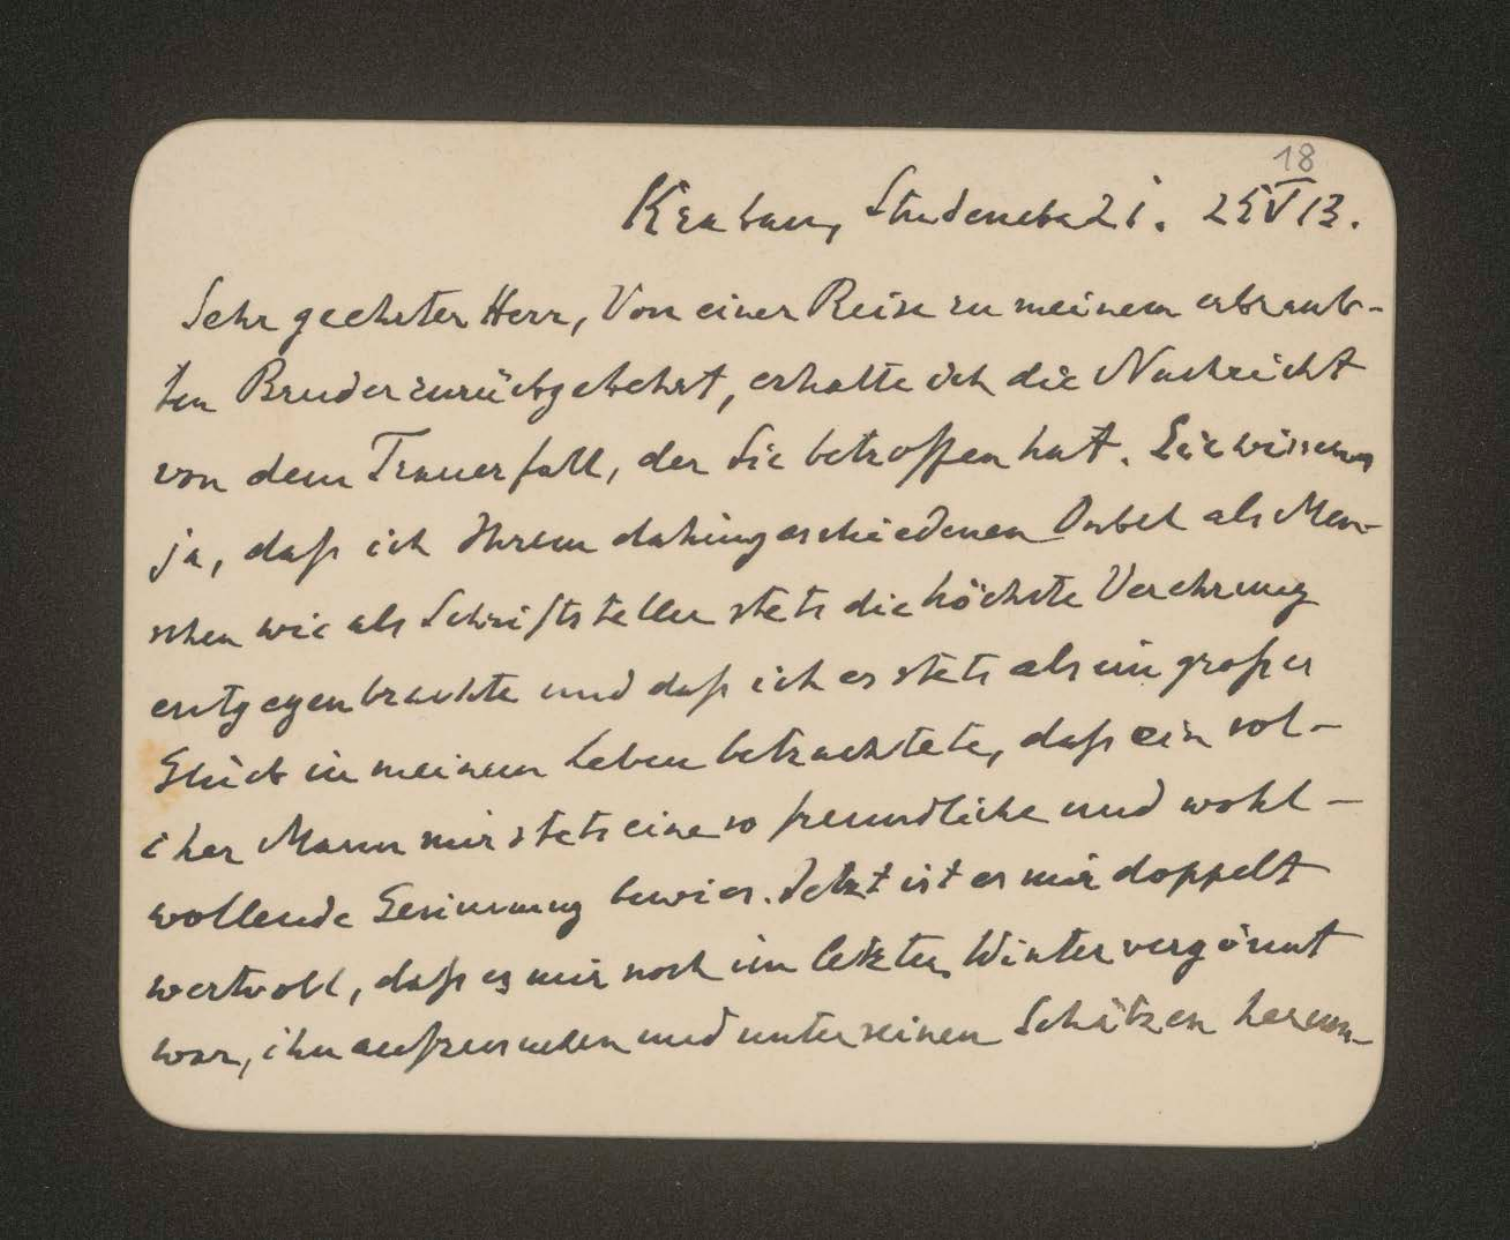 18
Krakau, Studencka 21. 25 V 13.
Sehr geehrter Herr, Von einer Reise zu meinem erkrank-
ten Bruder zurückgekehrt, erhalte ich die Nachricht
von dem Trauerfall, der Sie betroffen hat. Sie wissen
ja, daß ich Ihrem dahingeschiedenen Onkel als Men-
schen wie als Schriftsteller stets die höchste Verehrung
entgegenbrachte und daß ich es stets als ein großes
Glück in meinem Leben betrachtete, daß ein sol-
cher Mann mir stets eine so freundliche und wohl-
wollende Gesinnung bewies. Jetzt ist es mir doppelt
wertvoll, daß es mir noch im letzten Winter vergönnt
war, ihn aufzusuchen und unter seinen Schätzen herum-